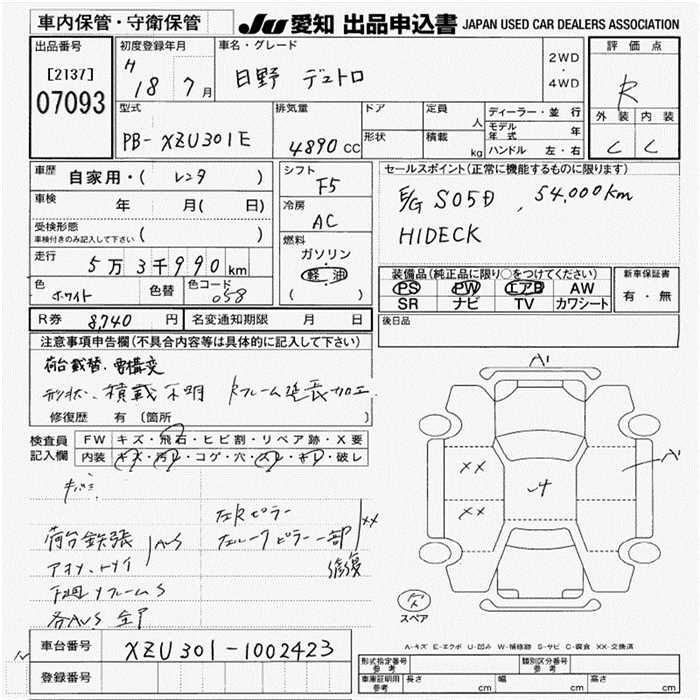 車内保管・守衛保管
JU 愛知 出品申込書 JAPAN USED CAR DEALERS ASSOCIATION
出品番号
[2137]
07093
初度登録年月
H 18 7月
車名・グレード
日野 デュトロ
2WD
・
4WD
評価点
R
外装 内装
C C
型式
PB-XZU301E
排気量
4890 CC
ドア
形状
定員
人
積載
kg
ディーラー・並行
モデル年式 年
ハンドル 左・右
車歴
自家用・( レンタ )
車検 年 月( 日)
受検形態
車検付きのみ記入して下さい ( )
走行
5万3千990km
色
ホワイト
色替
色コード
058
シフト
F5
冷房
AC
燃料
ガソリン
・
軽油
( )
セールスポイント(正常に機能するものに限ります)
E/G S05D , 54,000km
HIDECK
装備品(純正品に限り○をつけてください)
PS PW エアB AW
SR ナビ TV カワシート
新車保証書
有・無
R券 8,740 円 名変通知期限 月 日
後日品
注意事項申告欄(不具合内容等は具体的に記入して下さい)
荷台載替.要構変
形状、積載不明 Rフレーム延長加工
修復歴 有 〔箇所 〕
検査員
記入欄
FW キズ・飛石・ヒビ割・リペア跡・X要
内装 キズ・汚レ・コゲ・穴・スレ・キレ・破レ
荷台鉄張
アオリ、トリイ AUS
下廻リフレームS
各AUS
左Rピラー
左ルーフピラー一部 XX
修復
A'
XX
XX
A'
欠
スペア
A-キズ E-エクボ U-凹み W-補修跡 S-サビ C-腐食 XX-交換済
車台番号 XZU301-1002423
登録番号
形式指定番号
参考
類別区分番号
参考
車庫証明用
参考
長さ cm 幅 cm 高さ cm